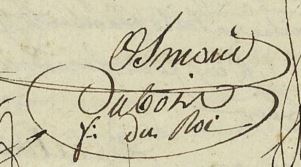 Osmond
Dubois
du Roi